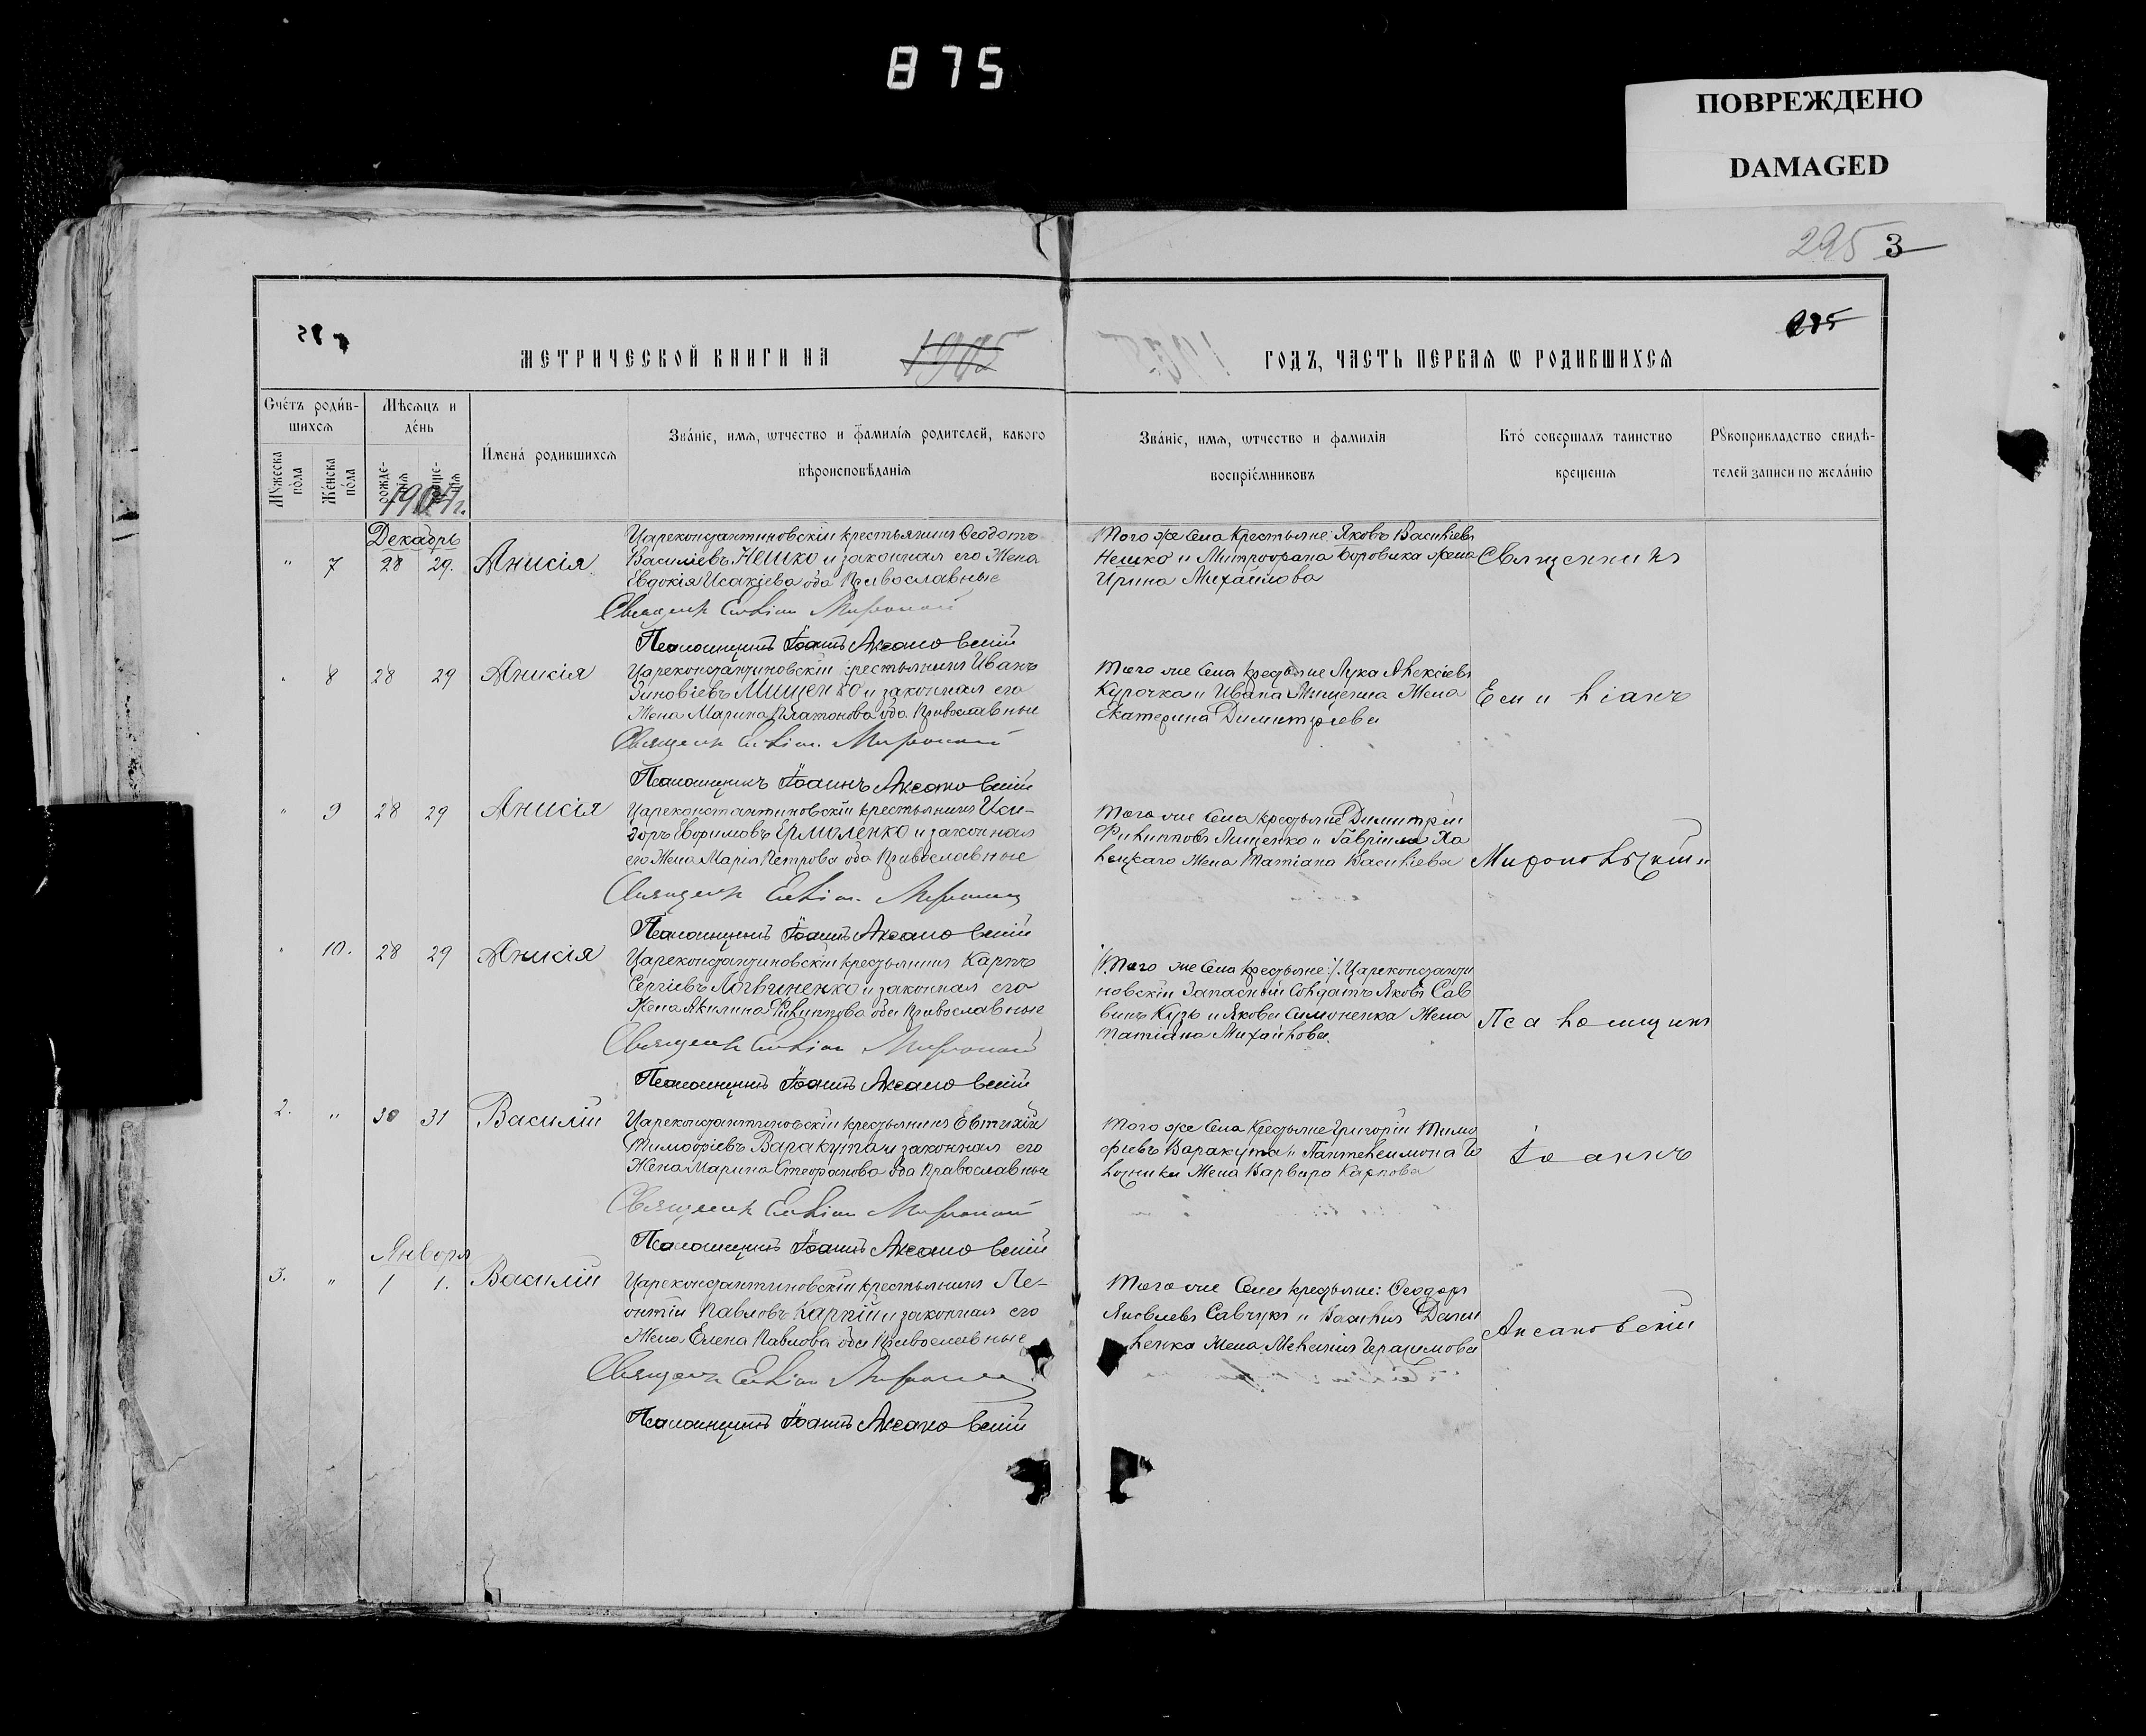 875
ПОВРЕЖДЕНО
DAMAGED
295 3
875
МЕТРИЧЕСКОЙ КНИГИ НА 1905 ГОДЪ, ЧАСТЬ ПЕРВАЯ Ѡ РОДИВШИХСЯ
Счétъ роди́в-
шихся
Мѣсяцъ и
де́нь
Мꙋжеска по́ла
Же́нска по́ла
рожде-нія
креще-нія
И́мена́ родившихся
Зва́ніе, имя, ѡтчество и фами́лія родителей, какого
вѣроисповѣданія
Зва́ніе, имя, ѡтчество и фамилія
воспріе́мниковъ
Кто́ совершалъ таинство
крещенія
Рꙋкоприкладство свидѣ-
телей записи по жела́нію
1904 г.
Декабрь
" 7 28 29. Анисія
Цареконстантиновскій крестьянинъ Ѳеодотъ
Василіевъ Нешко и законная его Жена
Евдокія Исакіева оба Православные
Священник Емиліан
Псаломщикъ Іоаннъ Аксановскій
Того же села Крестьяне: Яковъ Василіевъ
Нешко и Митрофана Боровика жена
Ирина Михайлова
Священникъ
" 8 28 29 Анисія
Цареконстантиновскій крестьянинъ Иванъ
Зиновіевъ Мищенко и законная его
Жена Марина Платонова оба Православные
Священник Емиліан
Псаломщикъ Іоаннъ Аксановскій
Того же села крестьяне Лука Алексіевъ
Курочка и Ивана Мищенка Жена
Екатерина Димитріева
Емиліанъ
" 9 28 29 Анисія
Цареконстантиновскій крестьянинъ Иси-
доръ Евфимовъ Ермоленко и законная
его Жена Марія Петрова оба Православные
Священник Емиліан
Псаломщикъ Іоаннъ Аксановскій
Того же села крестьяне Димитрій
Филипповъ Лищенко и Гавріила Ха
лецкаго Жена Татіана Василіева
" 10. 28 29 Анисія
Цареконстантиновскій крестьянинъ Карпъ
Сергіевъ Логвиненко и законная его
Жена Акилина Филиппова оба Православные
Священник Емиліан
Псаломщикъ Іоаннъ Аксановскій
Того же села крестьяне:/. Цареконстанти
новскій Запасный Солдатъ Яковъ Сав
винъ Кузь и Якова Симоненка Жена
Татіана Михайлова.
Псаломщикъ
2. " 30 31 Василій
Цареконстантиновскій крестьянинъ Евтихій
Тимофіевъ Варакута и законная его
Жена Марина Стефанова оба Православные
Священник Емиліан
Псаломщикъ Іоаннъ Аксановскій
Того же села Крестьяне Григорій Тимо
фіевъ Варакута и Пантелеимона
Жена Варвара Карпова
Іоаннъ
Января
3. " 1 1. Василій
Цареконстантиновскій крестьянинъ Ле-
онтій Павловъ Карпій и законная его
Жена Елена Павлова оба Православные
Священник Емиліан
Псаломщикъ Іоаннъ Аксановскій
Того же Села крестьяне: Ѳеодоръ
Яковлевъ Савчукъ и Василія Дани
ленка Жена Меланія Герасимова
Аксановскій